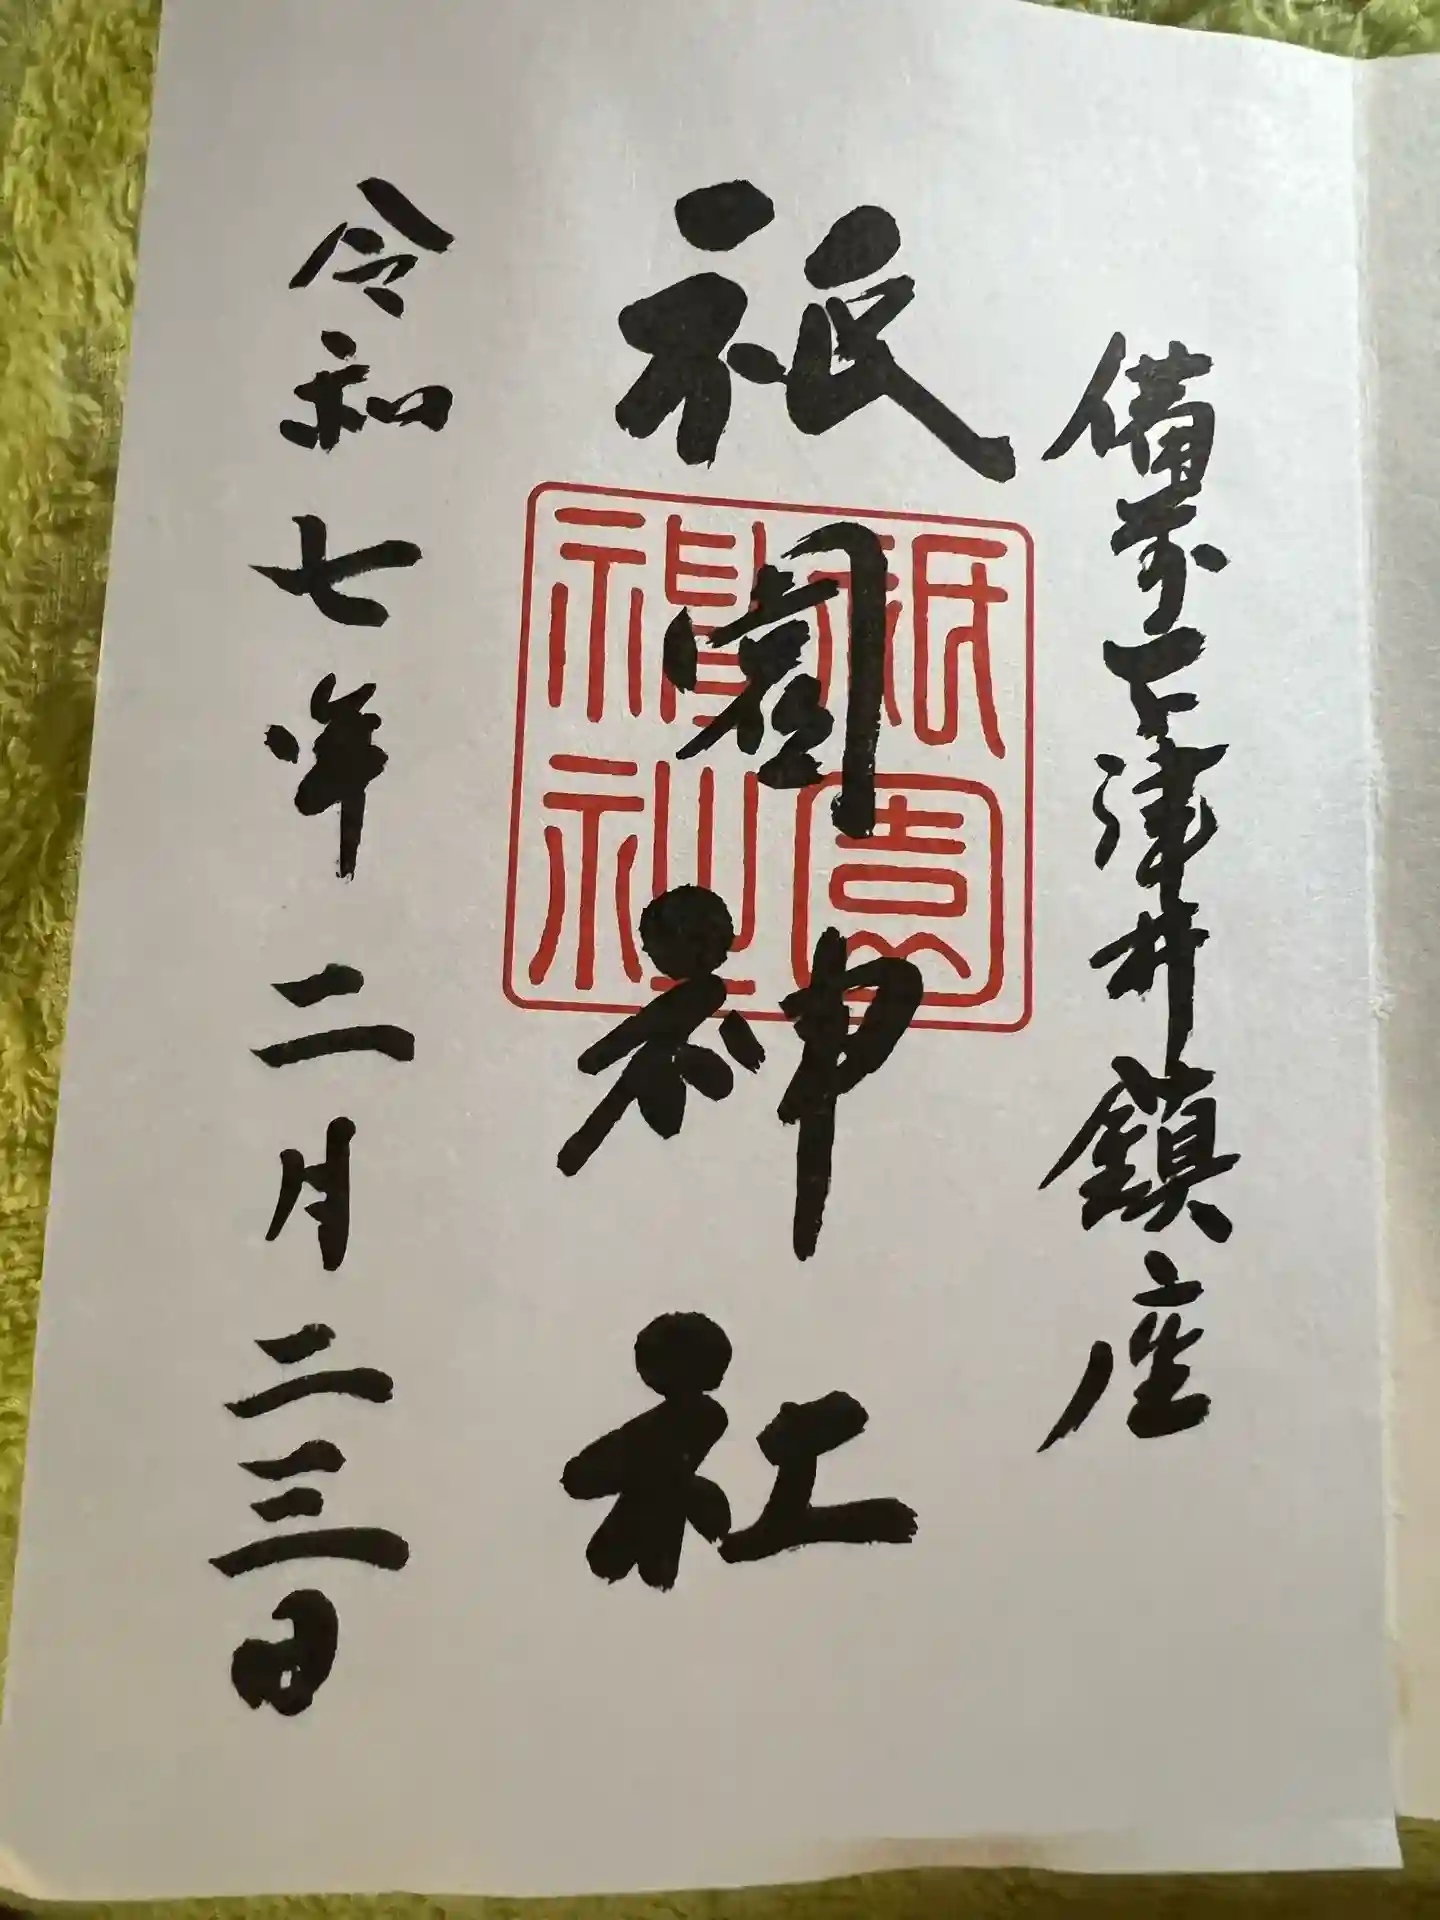 備前下津井鎮座
祇園神社
祇園神社
令和七年二月二三日